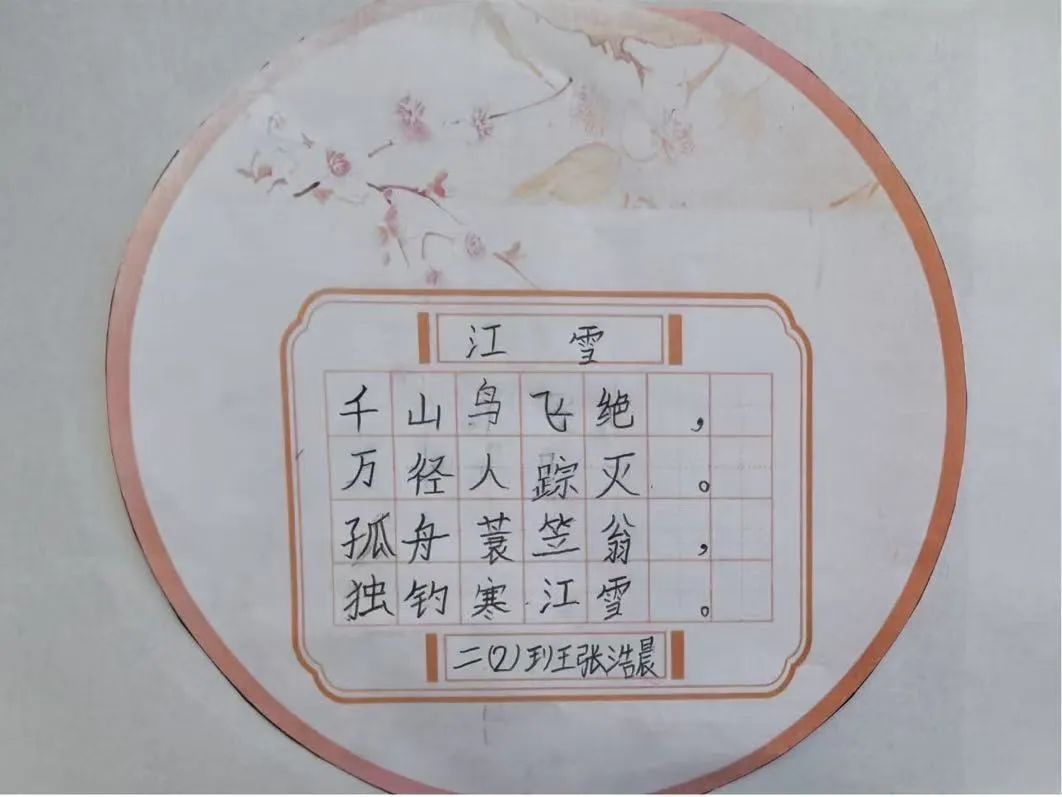 江雪
千山鸟飞绝，
万径人踪灭。
孤舟蓑笠翁，
独钓寒江雪。
二(2)班张浩晨